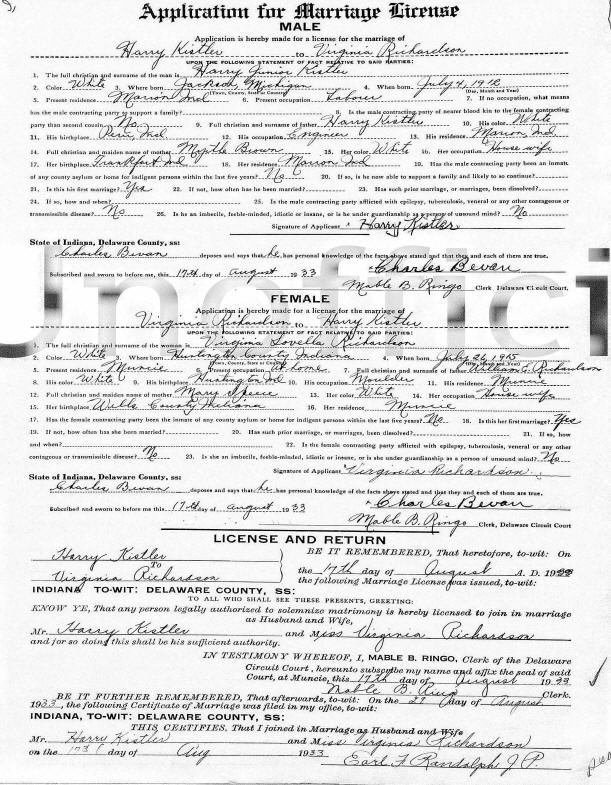 Application for Marriage License
MALE
Application is hereby made for a license for the marriage of
Harry Kistler to Virginia Richardson
UPON THE FOLLOWING STATEMENT OF FACT RELATIVE TO SAID PARTIES:
1. The full christian and surname of the man is Harry Junior Kistler
2. Color White 3. Where born Jackson, Michigan 4. When born July 4, 1912
(Town, County, State or Country) (Day, Month and Year)
5. Present residence Marion Ind 6. Present occupation Laborer 7. If no occupation, what means
has the male contracting party to support a family? 8. Is the male contracting party of nearer blood kin to the female contracting
party than second cousin? No 9. Full christian and surname of father Harry Kistler 10. His color White
11. His birthplace Peru, Ind 12. His occupation Engineer 13. His residence Marion, Ind
14. Full christian and maiden name of mother Myrtle Brown 15. Her color White 16. Her occupation House wife
17. Her birthplace Frankfort Ind 18. Her residence Marion Ind 19. Has the male contracting party been an inmate
of any county asylum or home for indigent persons within the last five years? No 20. If so, is he now able to support a family and likely to so continue?
21. Is this his first marriage? Yes 22. If not, how often has he been married? 23. Has such prior marriage, or marriages, been dissolved?
24. If so, how and when? 25. Is the male contracting party afflicted with epilepsy, tuberculosis, venereal or any other contagious or
transmissible disease? No 26. Is he an imbecile, feeble-minded, idiotic or insane, or is he under guardianship as a person of unsound mind? No
Signature of Applicant Harry Kistler
State of Indiana, Delaware County, ss:
Charles Bevan deposes and says that he has personal knowledge of the facts above stated and that they and each of them are true.
Charles Bevan
Subscribed and sworn to before me, this 17th day of August 1933
Mable B. Ringo Clerk Delaware Circuit Court.
Unoffici
FEMALE
Application is hereby made for a license for the marriage of
Virginia Richardson to Harry Kistler
UPON THE FOLLOWING STATEMENT OF FACT RELATIVE TO SAID PARTIES:
1. The full christian and surname of the woman is Virginia Lovella Richardson
2. Color White 3. Where born Huntington County Indiana 4. When born July 26, 1915
(Town, County, State or Country) (Day, Month and Year)
5. Present residence Muncie 6. Present occupation At home 7. Full christian and surname of father William E. Richardson
8. His color White 9. His birthplace Huntington Ind 10. His occupation Moulder 11. His residence Muncie
12. Full christian and maiden name of mother Mary 13. Her color White 14. Her occupation House wife
15. Her birthplace Wells County Indiana 16. Her residence Muncie
17. Has the female contracting party been the inmate of any county asylum or home for indigent persons within the last five years? No 18. Is this her first marriage? Yes
19. If not, how often has she been married? 20. Has such prior marriage, or marriages, been dissolved? 21. If so, how
and when? 22. Is the female contracting party afflicted with epilepsy, tuberculosis, venereal or any other
contagious or transmissible disease? No 23. Is she an imbecile, feeble-minded, idiotic or insane, or is she under guardianship as a person of unsound mind? No
Signature of Applicant Virginia Richardson
State of Indiana, Delaware County, ss:
Charles Bevan deposes and says that he has personal knowledge of the facts above stated and that they and each of them are true.
Charles Bevan
Subscribed and sworn to before me, this 17th day of August 1933
Mable B. Ringo Clerk, Delaware Circuit Court
LICENSE AND RETURN
Harry Kistler
To
Virginia Richardson
BE IT REMEMBERED, That heretofore, to-wit: On
the 17th day of August A. D. 1933
the following Marriage License was issued, to-wit:
INDIANA TO-WIT: DELAWARE COUNTY, SS:
TO ALL WHO SHALL SEE THESE PRESENTS, GREETING:
KNOW YE, That any person legally authorized to solemnize matrimony is hereby licensed to join in marriage
as Husband and Wife,
Mr. Harry Kistler and Miss Virginia Richardson
and for so doing this shall be his sufficient authority.
IN TESTIMONY WHEREOF, I, MABLE B. RINGO, Clerk of the Delaware
Circuit Court, hereunto subscribe my name and affix the seal of said
Court, at Muncie, this 17th day of August 1933
Mable B. Ringo Clerk.
BE IT FURTHER REMEMBERED, That afterwards, to-wit: On the 29 day of August
1933, the following Certificate of Marriage was filed in my office, to-wit:
INDIANA, TO-WIT: DELAWARE COUNTY, SS:
THIS CERTIFIES, That I joined in Marriage as Husband and Wife
Mr. Harry Kistler and Miss Virginia Richardson
on the day of Aug 1933
Earl F Randolph J.P.